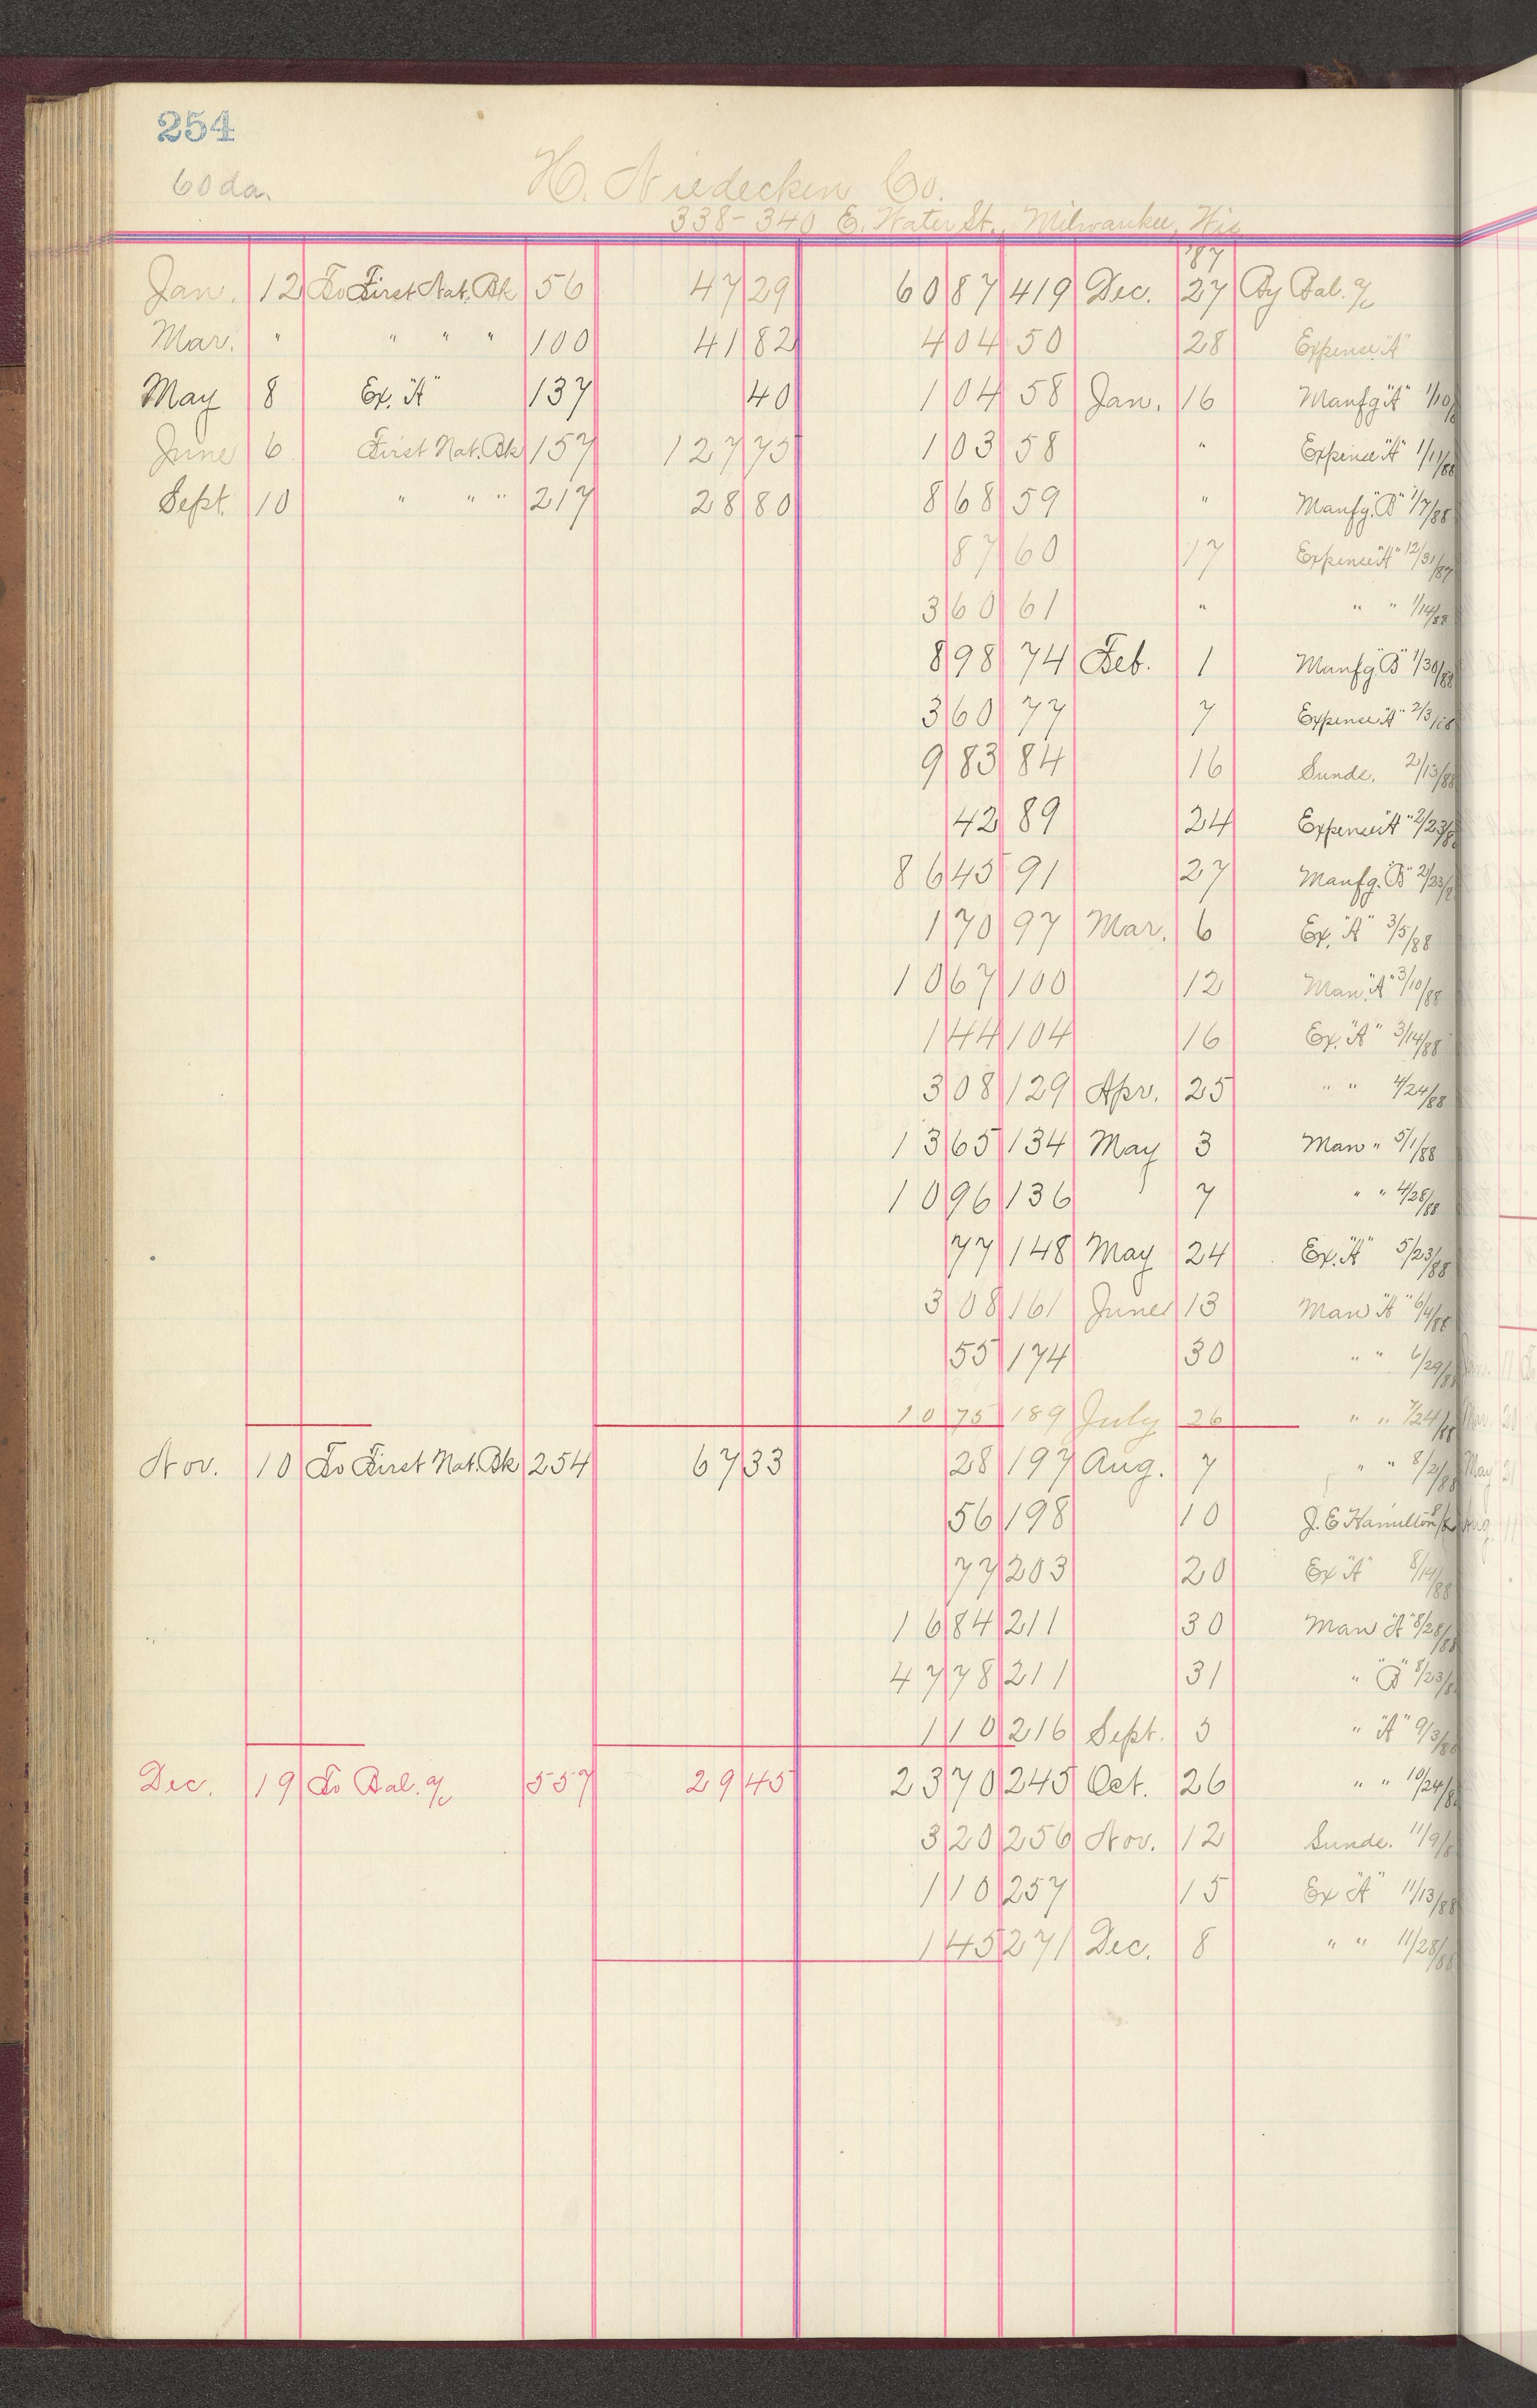 254
60 da.
H. Niedecken Co.
338-340 E. Water St., Milwaukee, Wis
'87
Jan. 12 To First Nat. Bk 56 47 29 60 87 419 Dec. 27 By Bal. a/c
Mar. " " " " 100 41 82 4 04 50 28 Expense "A"
May 8 Ex. "A" 137 40 1 04 58 Jan. 16 Manfg "A" 1/10/
June 6 First Nat. Bk 157 127 75 1 03 58 " Expense "A" 1/11/88
Sept. 10 " " " 217 28 80 8 68 59 " Manfg. "B" 1/7/88
87 60 17 Expense "A" 12/31/87
3 60 61 " " " 1/14/88
8 98 74 Feb. 1 Manfg "B" 1/30/88
3 60 77 7 Expense "A" 2/3/88
9 83 84 16 Sunds. 2/13/88
42 89 24 Expense "A" 2/23/8
86 45 91 27 Manfg. "B" 2/23/8
1 70 97 Mar. 6 Ex. "A" 3/5/88
10 67 100 12 Man. "A" 3/10/88
1 44 104 16 Ex. "A" 3/14/88
3 08 129 Apr. 25 " " 4/24/88
13 65 134 May 3 Man " 5/1/88
10 96 136 7 " " 4/28/88
77 148 May 24 Ex. "A" 5/23/88
3 08 161 June 13 Man "A" 6/4/88
55 174 30 " " 6/29/88
10 75 189 July 26 " " 7/24/88
Nov. 10 To First Nat. Bk 254 67 33 28 197 Aug. 7 " " 8/2/88
56 198 10 J. E Hamilton
77 203 20 Ex "A" 8/14/88
16 84 211 30 Man "A" 8/28/88
47 78 211 31 " "B" 8/23/8
1 10 216 Sept. 5 " "A" 9/3/88
Dec. 19 To Bal. a/c 557 29 45 23 70 245 Oct. 26 " " 10/24/88
3 20 256 Nov. 12 Sunds. 11/9/8
1 10 257 15 Ex "A" 11/13/88
1 45 271 Dec. 8 " " 11/28/88